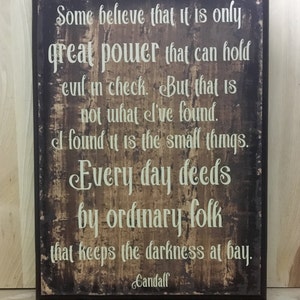 Some believe that it is only
great power that can hold
evil in check. But that is
not what I've found.
I found it is the small things.
Every day deeds
by ordinary folk
that keeps the darkness at bay.
Gandalf